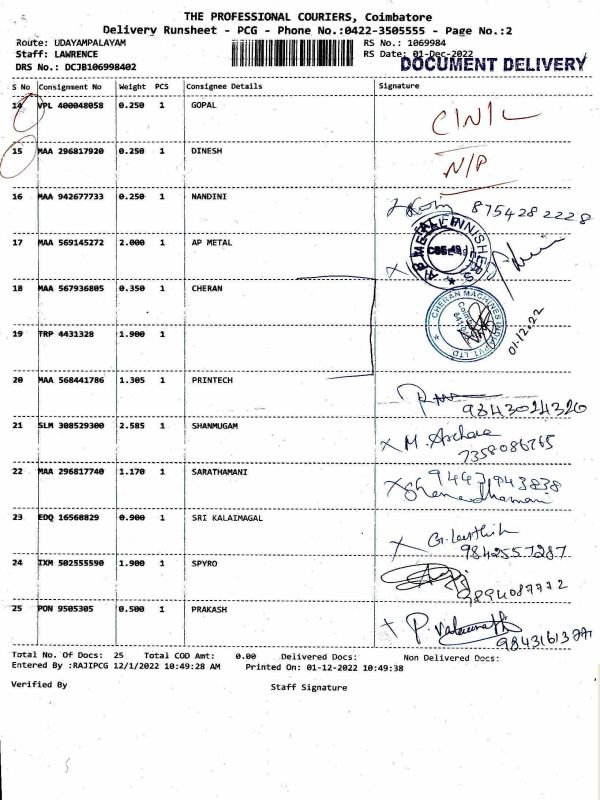 THE PROFESSIONAL COURIERS, Coimbatore
Delivery Runsheet - PCG - Phone No.:0422-3505555 - Page No.:2
Route: UDAYAMPALAYAM RS No.: 1069984
Staff: LAWRENCE RS Date: 01-Dec-2022
DRS No.: DCJB106998402 DOCUMENT DELIVERY
S No Consignment No Weight PCS Consignee Details Signature
14 VPL 400048058 0.250 1 GOPAL
15 MAA 296817920 0.250 1 DINESH N/P
16 MAA 942677733 0.250 1 NANDINI 8754282228
17 MAA 569145272 2.000 1 AP METAL
18 MAA 567936805 0.350 1 CHERAN CHERAN MACHINES INDIA PVT LTD
19 TRP 4431328 1.900 1 01.12.22
20 MAA 568441786 1.305 1 PRINTECH 9843024320
21 SLM 308529300 2.585 1 SHANMUGAM M. Archana 7358086765
22 MAA 296817740 1.170 1 SARATHAMANI
23 EDQ 16568829 0.900 1 SRI KALAIMAGAL 9842557287
24 IXM 502555590 1.900 1 SPYRO
25 PON 9505305 0.500 1 PRAKASH
Total No. Of Docs: 25 Total COD Amt: 0.00 Delivered Docs: Non Delivered Docs:
Entered By :RAJIPCG 12/1/2022 10:49:28 AM Printed On: 01-12-2022 10:49:38
Verified By Staff Signature